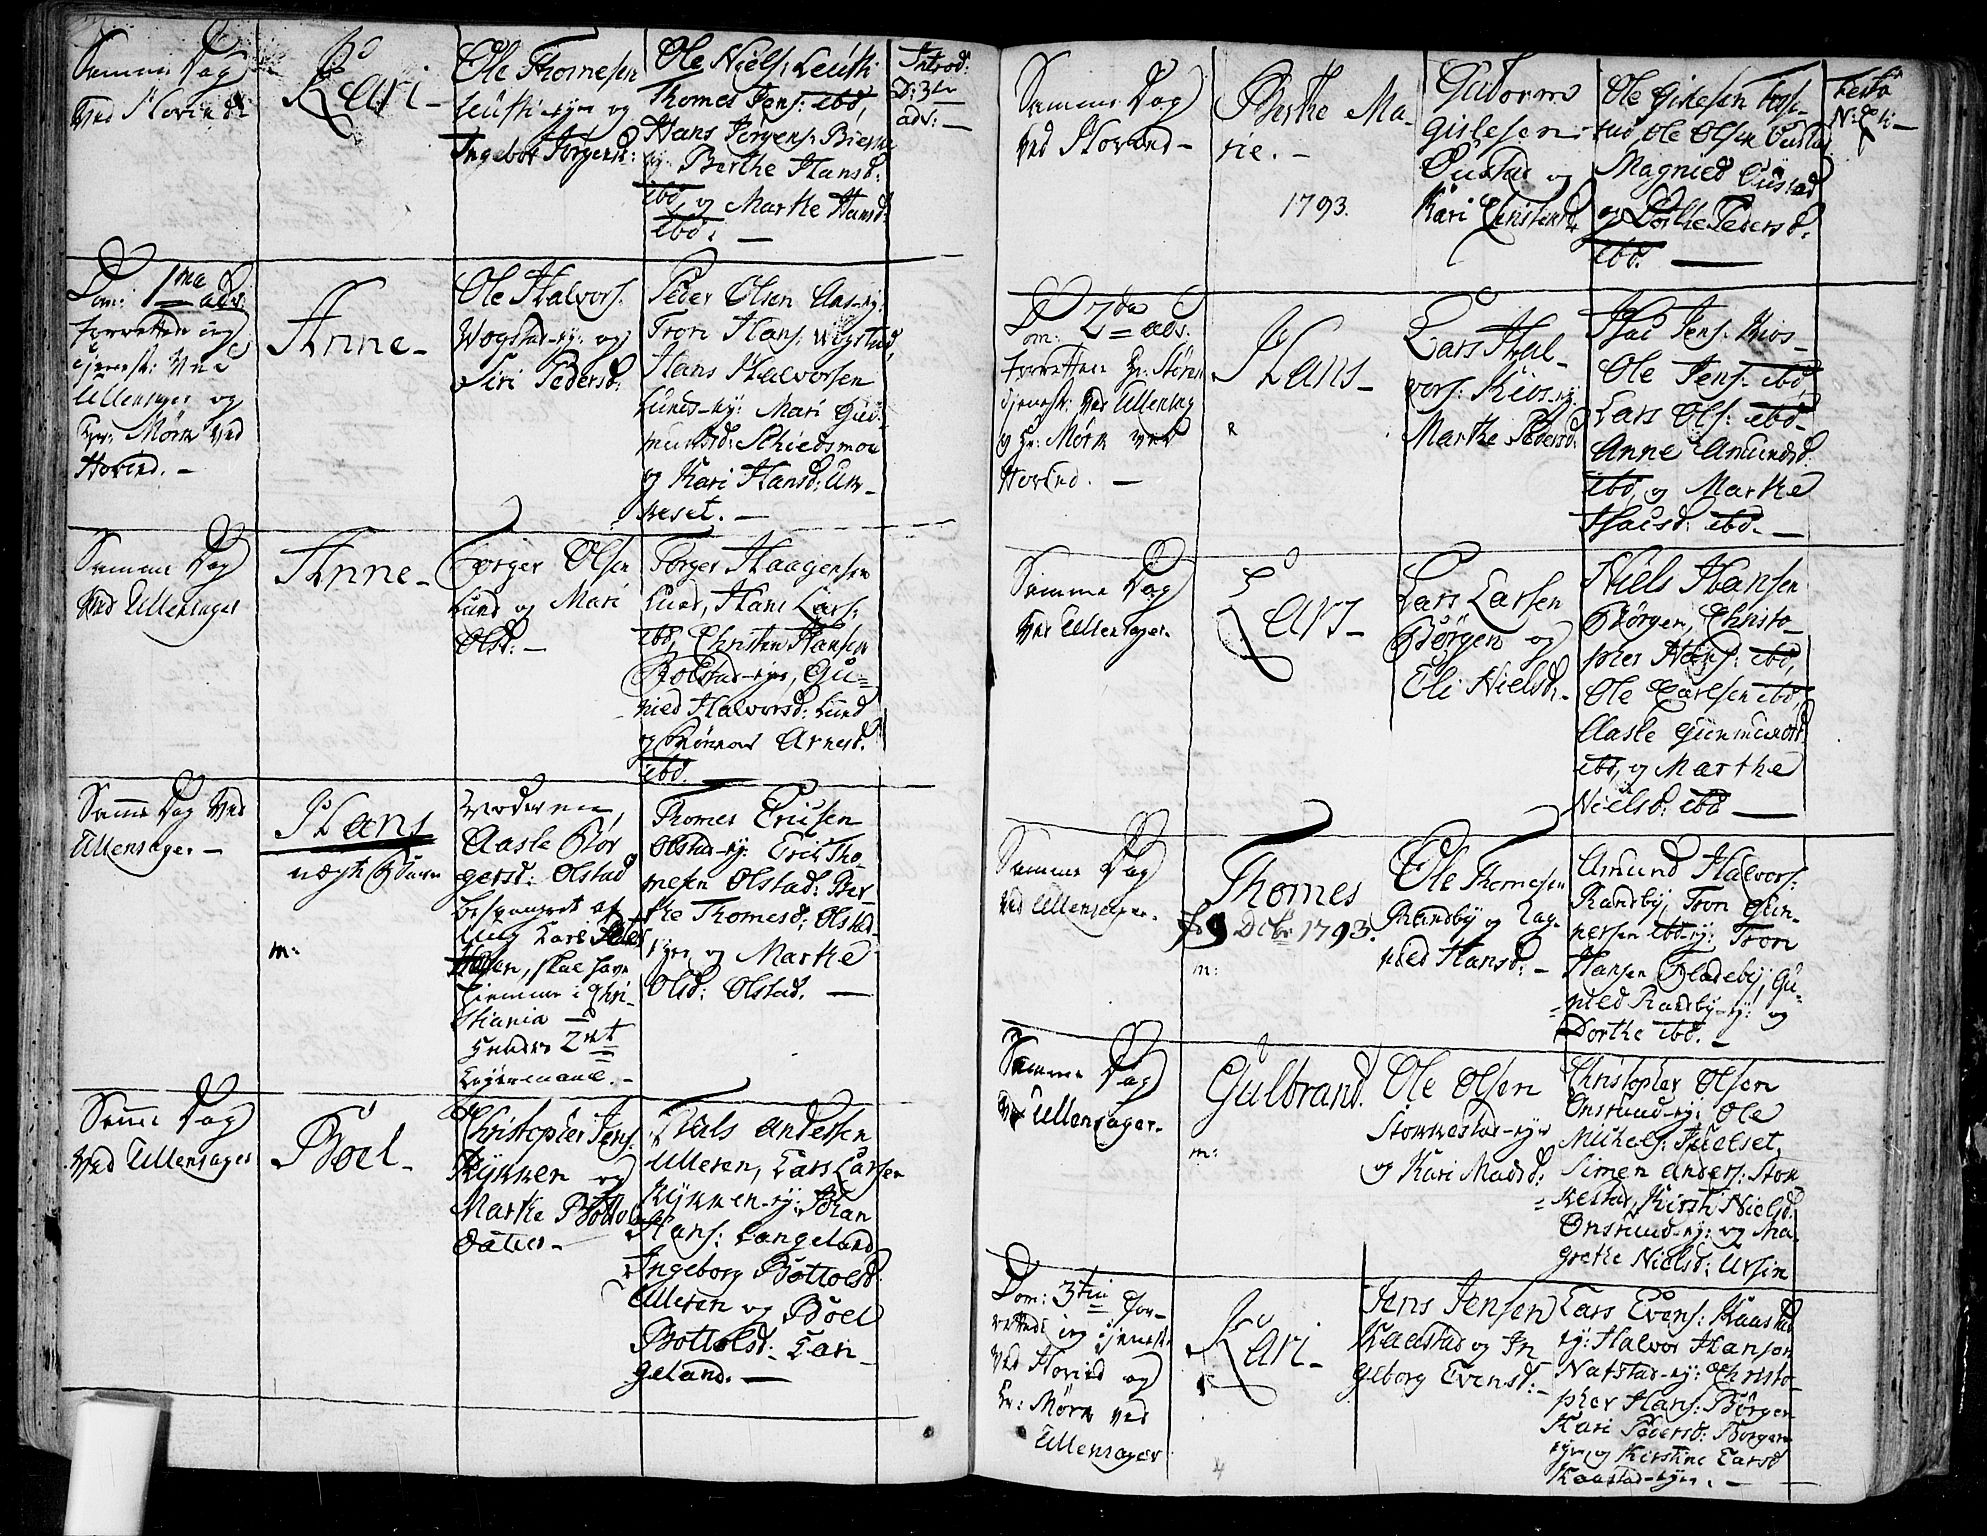 Samme Dag
ved Hovind
Kari -
Ole Thomesen
Leuthi-eye og
Ingebor Jörgensd:
Ole Niels: Leuthi
Thomes Jens: ibd,
Hans Jörgens: Bierke
og Berthe Hansd:
ibd, og Marthe Hansd:
ibd. -
Introd:
D: 3tia
adv: -
Dom: 1ma adv:
forrettede jeg
tjenest: ved
Ullensager og
Hr: Mørk ved
Hovind. -
Anne -
Ole Halvors:
Wogstad-ey: og
Siri Pedersd:
Peder Olsen Aas-ey:
Tron Hans: Wogstad,
Hans Halvorsen
Lunds-ey: Mari Gud
mundsd: Schiedsmoe
og Kari Hansd: Aur-
keset. -
Samme Dag
ved Ullensager
Anne -
Torger Olsen
Lund og Mari
Olsd: -
Torger Haagensen
Lund, Hans Lars:
ibd, Christen Hansen
Bolstad-eye, Gu-
nild Halvorsd: Lund
og Rönnow Arnesd.
ibd.
Samme Dag ved
Ullensager -
Hans
uægte Barn
m:
Moderen
Aasle Bör
gersd: Olstad
besvangret af
Carl Peder
skal have
hiemme i Chri-
stiania -
hendes 2det
Leyermaal. -
Thomes Ericsen
Olstad-ey: Erik Tho-
mesen Olstad: Ber-
the Thomesd: Olstad
eye og Marthe
Olsd: Olstad. -
Samme Dag
ved Ullensager
Boel -
Christopher Jens:
Kykken og
Marthe Bottols
datter -
Niels Andersen
Ulleren, Lars Larsen
Kykken-ey: Johan
Hans: Langeland
Ingeborg Bottolsd:
Ulleren og Boel
Bottolsd: Lan-
geland. -
Samme Dag
ved Hovind -
Berthe Ma-
rie. -
1793.
Gudorm
Gislesen
Oustad og
Kari Christensd:
Ole Gislesen
Ole Olsen Oustad
Magnild Oustad
og Dorthe Pedersd:
ibd. -
Festo
Dom: 2da adv:
forrettede Hr: Støren
tjenest: ved Ullensag
og Hr: Mørk ved
Hovind. -
Hans -
Lars Hal-
vors: Kios-ey:
Marthe Pedersd:
Isac Jens: Kios -
Ole Jens: ibd,
Lars Ols: ibd -
Anne Amundsd.
ibd, og Marthe
Isacsd: ibd. -
Samme Dag
ved Ullensager.
Lars -
Lars Larsen
Börgen og
Eli Nielsd: -
Niels Hansen
Börgen, Christo-
pher Hans: ibd,
Ole Carlsen ibd,
Aasle Gunmundsd
ibd, og Marthe
Nielsd: ibd -
Samme Dag
ved Ullensager.
Thomes
9 Decbr 1793.
m:
Ole Thomesen
Randby og Rag-
nild Hansd: -
Amund Halvors:
Randby, Tron Gun-
nersen ibd-ey: Tron
Hansen Gladeby, Gu-
nild Randby-ey: og
Dorthe ibd. -
Samme Dag
ved Ullensager.
Gulbrand.
m:
Ole Olsen
Stokkestad-eye
og Kari Madsd:
Christopher Olsen
Onsrund-ey: Ole
Michels: Juelset,
Simen Anders: Stok
kestad, Kirsti Nielsd
Onsrund-ey: og Ma-
grethe Nielsd: Ursin
Dom: 3tia for-
rettede jeg tjenest:
ved Hovind og
Hr: Mørk ved
Ullensager
Kari -
Jens Jensen
Kaastad og In
geborg Evensd: -
Lars Evens: Kaastad
ey: Halvor Hansen
Natstad-ey: Christo-
pher Hans: Börgen
Kari Pedersd: Börgen
eye og Kirstine Larsd
Kaastad-eye. -